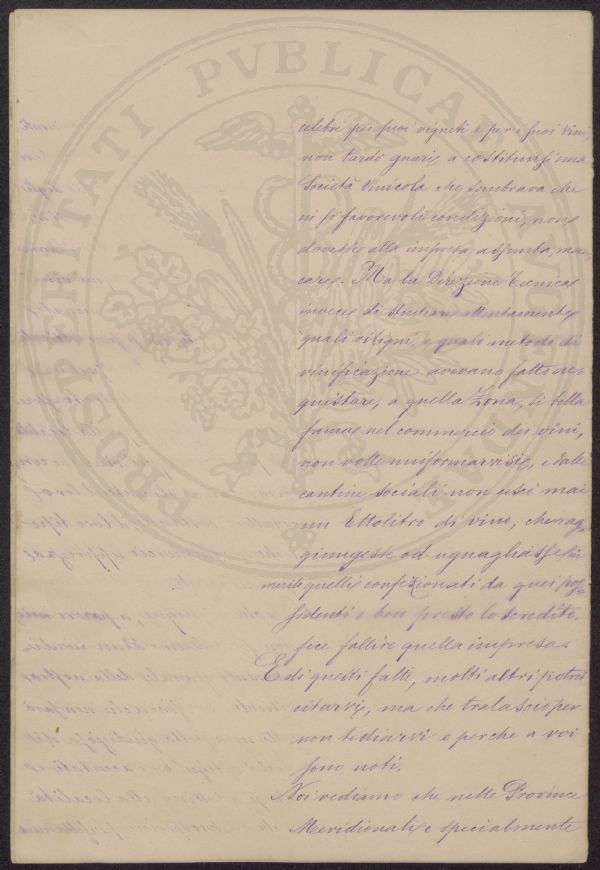 PROSPERITATI PVBLICAE
celebre pei suoi vigneti e per i suoi vini,
non tardò guari a costituirsi una
Società Vinicola che sembrava che
in sì favorevoli condizioni, non
dovesse alla impresa assunta, man-
care. Ma la Direzione Tecnica
invece di studiare attentamente
quali vitigni, e quali metodi di
vinificazione avevano fatto ac-
quistare, a quella Zona, sì bella
fama nel commercio dei vini,
non volle uniformarvisi, e dalle
cantine sociali non uscì mai
un Ettolitro di vino, che rag-
giungesse od uguagliasse in
merito quelli confezionati da quei pos-
sidenti e ben presto lo scredito,
fece fallire quella impresa.
E di questi fatti, molti altri potrei
citarvi, ma che tralascio per
non tediarvi e perchè a voi
sono noti.
Noi vediamo che nelle Province
Meridionali e specialmente